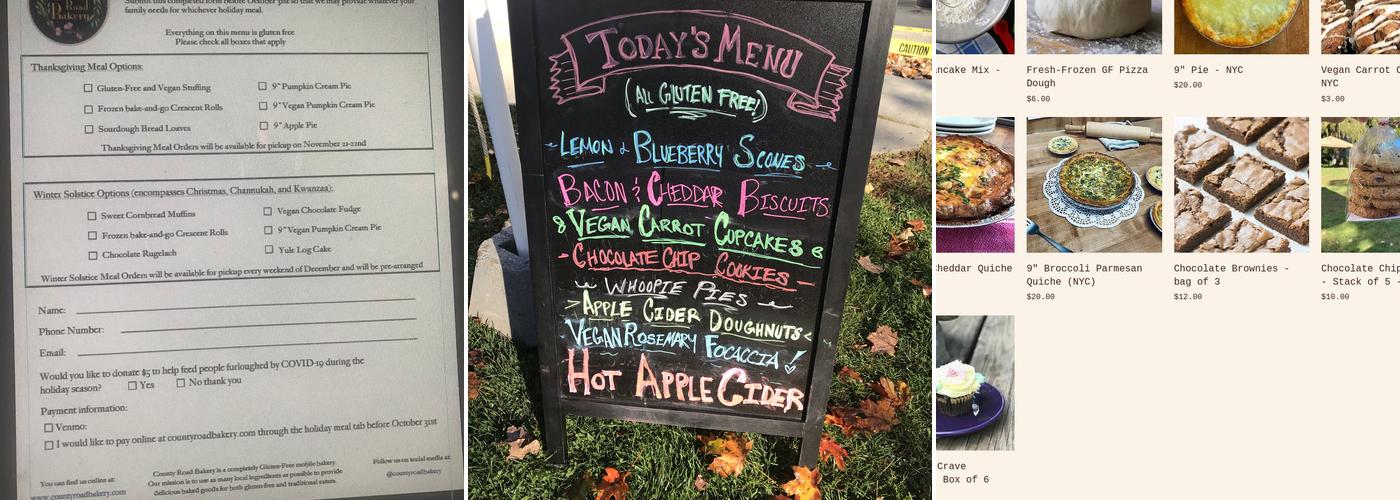 Road
Bakery
Submit this completed form before October 31st so that we may provide whatever your
family needs for whichever holiday meal.
Everything on this menu is gluten-free
Please check all boxes that apply
Thanksgiving Meal Options:
Gluten-Free and Vegan Stuffing
Frozen bake-and-go Crescent Rolls
Sourdough Bread Loaves
9" Pumpkin Cream Pie
9" Vegan Pumpkin Cream Pie
9" Apple Pie
Thanksgiving Meal Orders will be available for pickup on November 21-22nd
Winter Solstice Options (encompasses Christmas, Channukah, and Kwanzaa):
Sweet Cornbread Muffins
Frozen bake-and-go Crescent Rolls
Chocolate Rugelach
Vegan Chocolate Fudge
9" Vegan Pumpkin Cream Pie
Yule Log Cake
Winter Solstice Meal Orders will be available for pickup every weekend of December and will be pre-arranged
Name:
Phone Number:
Email:
Would you like to donate $5 to help feed people furloughed by COVID-19 during the
holiday season? Yes No thank you
Payment information:
Venmo:
I would like to pay online at countyroadbakery.com through the holiday meal tab before October 31st
You can find us online at:
www.countyroadbakery.com
County Road Bakery is a completely Gluten-Free mobile bakery.
Our mission is to use as many local ingredients as possible to provide
delicious baked goods for both gluten-free and traditional eaters.
Follow us on social media at:
@countyroadbakery
TODAY'S MENU
(ALL GLUTEN FREE!)
LEMON & BLUEBERRY SCONES
BACON & CHEDDAR BISCUITS
VEGAN CARROT CUPCAKES
- CHOCOLATE CHIP COOKIES -
WHOOPIE PIES
>APPLE CIDER DOUGHNUTS<
VEGAN ROSEMARY FOCACCIA!
HOT APPLE CIDER
CAUTION
ncake Mix -
Fresh-Frozen GF Pizza
Dough
$6.00
9" Pie - NYC
$20.00
Vegan Carrot C
NYC
$3.00
heddar Quiche
9" Broccoli Parmesan
Quiche (NYC)
$20.00
Chocolate Brownies -
bag of 3
$12.00
Chocolate Chip
- Stack of 5 -
$10.00
Crave
Box of 6